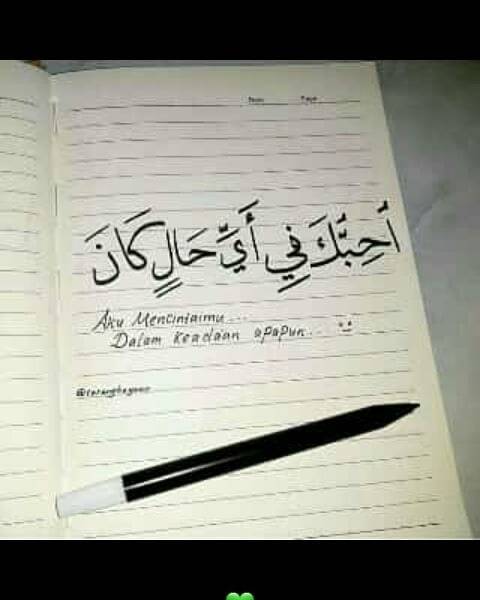 أُحِبُّكَ فِي أَيِّ حَالٍ كَانَ
Aku Mencintaimu...
Dalam Keadaan apapun...